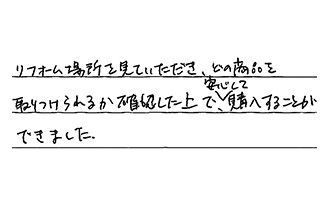 リフォーム場所を見ていただき、どの商品を
取りつけられるか確認した上で、安心して購入することが
できました。